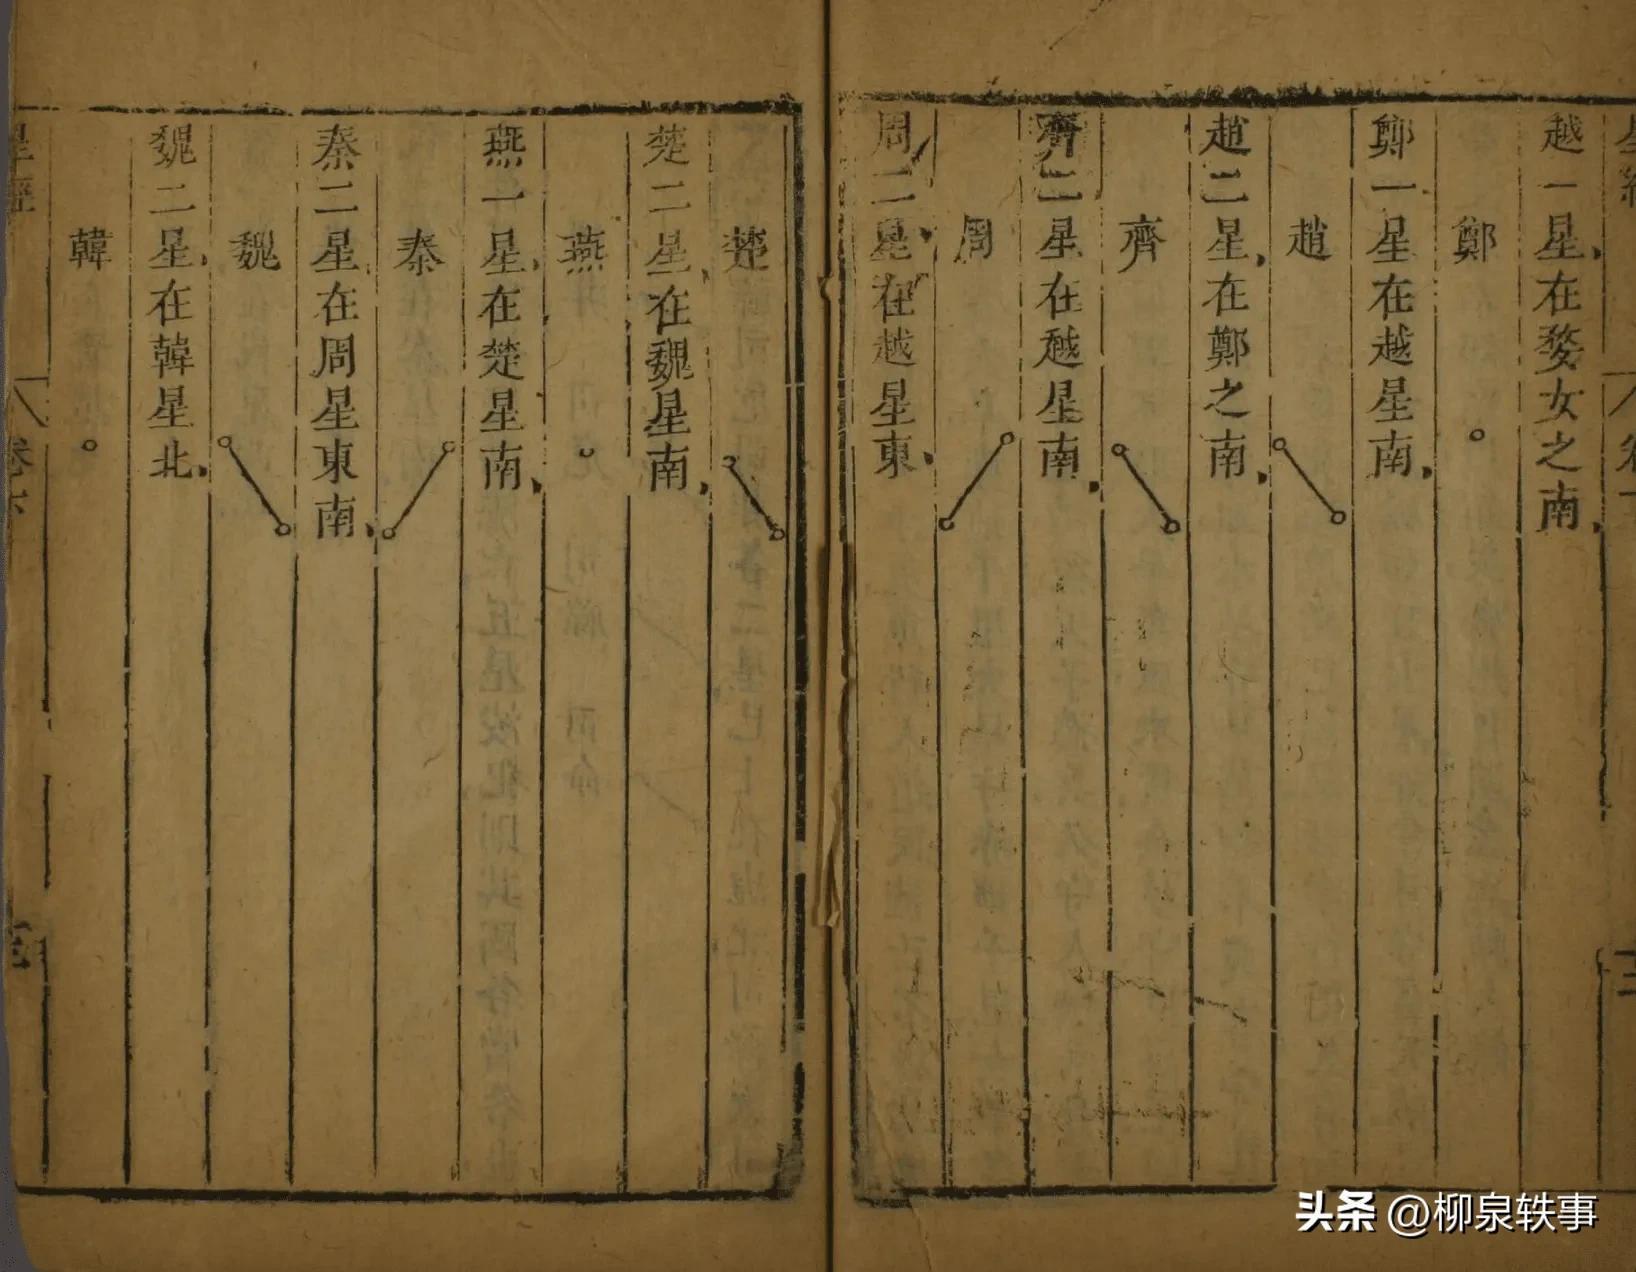 星經
卷下
越一星在婺女之南
鄭
鄭一星在越星南
趙
趙二星在鄭之南
齊
齊二星在越星南
周
周二星在越星東
楚
楚二星在魏星南
燕
燕一星在楚星南
秦
秦二星在周星東南
魏
魏二星在韓星北
韓
星經
卷下
头条 @柳泉轶事